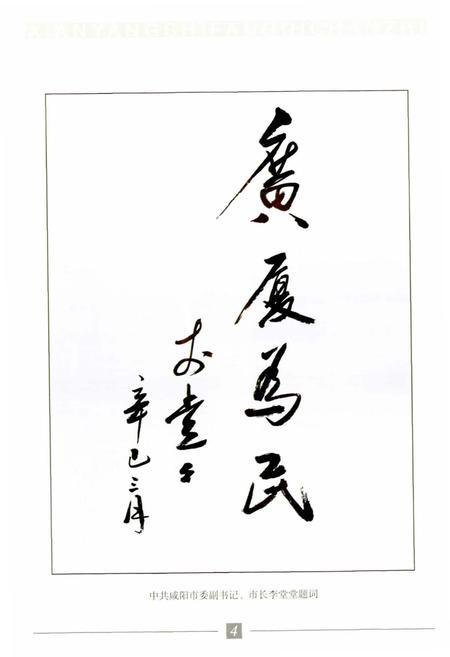 XIANYANGSHIFANGDICHANZHI
廣厦為民
李堂堂
辛巳三月
中共咸阳市委副书记、市长李堂堂题词
4